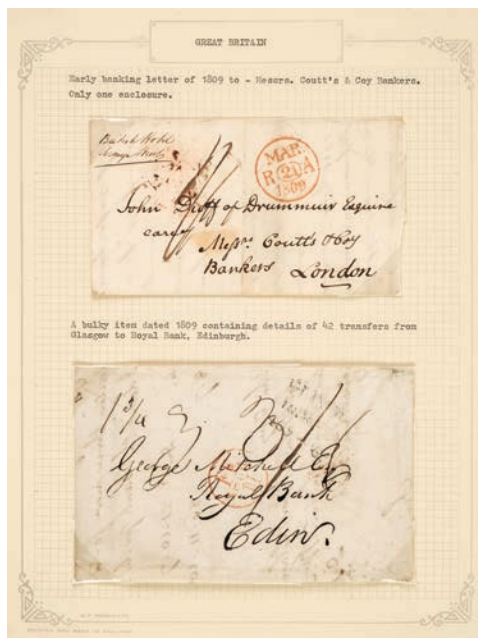 GREAT BRITAIN
Early banking letter of 1809 to - Messrs. Coutt's & Coy Bankers.
Only one enclosure.
British Hotel
MAR
R 21 A
1809
John Duff of Drummuir Esquire
care
Messrs Coutt's & Coy
Bankers London
A bulky item dated 1809 containing details of 42 transfers from
Glasgow to Royal Bank, Edinburgh.
1 3/4
George Mitchell Esq
Royal Bank
Edinr.